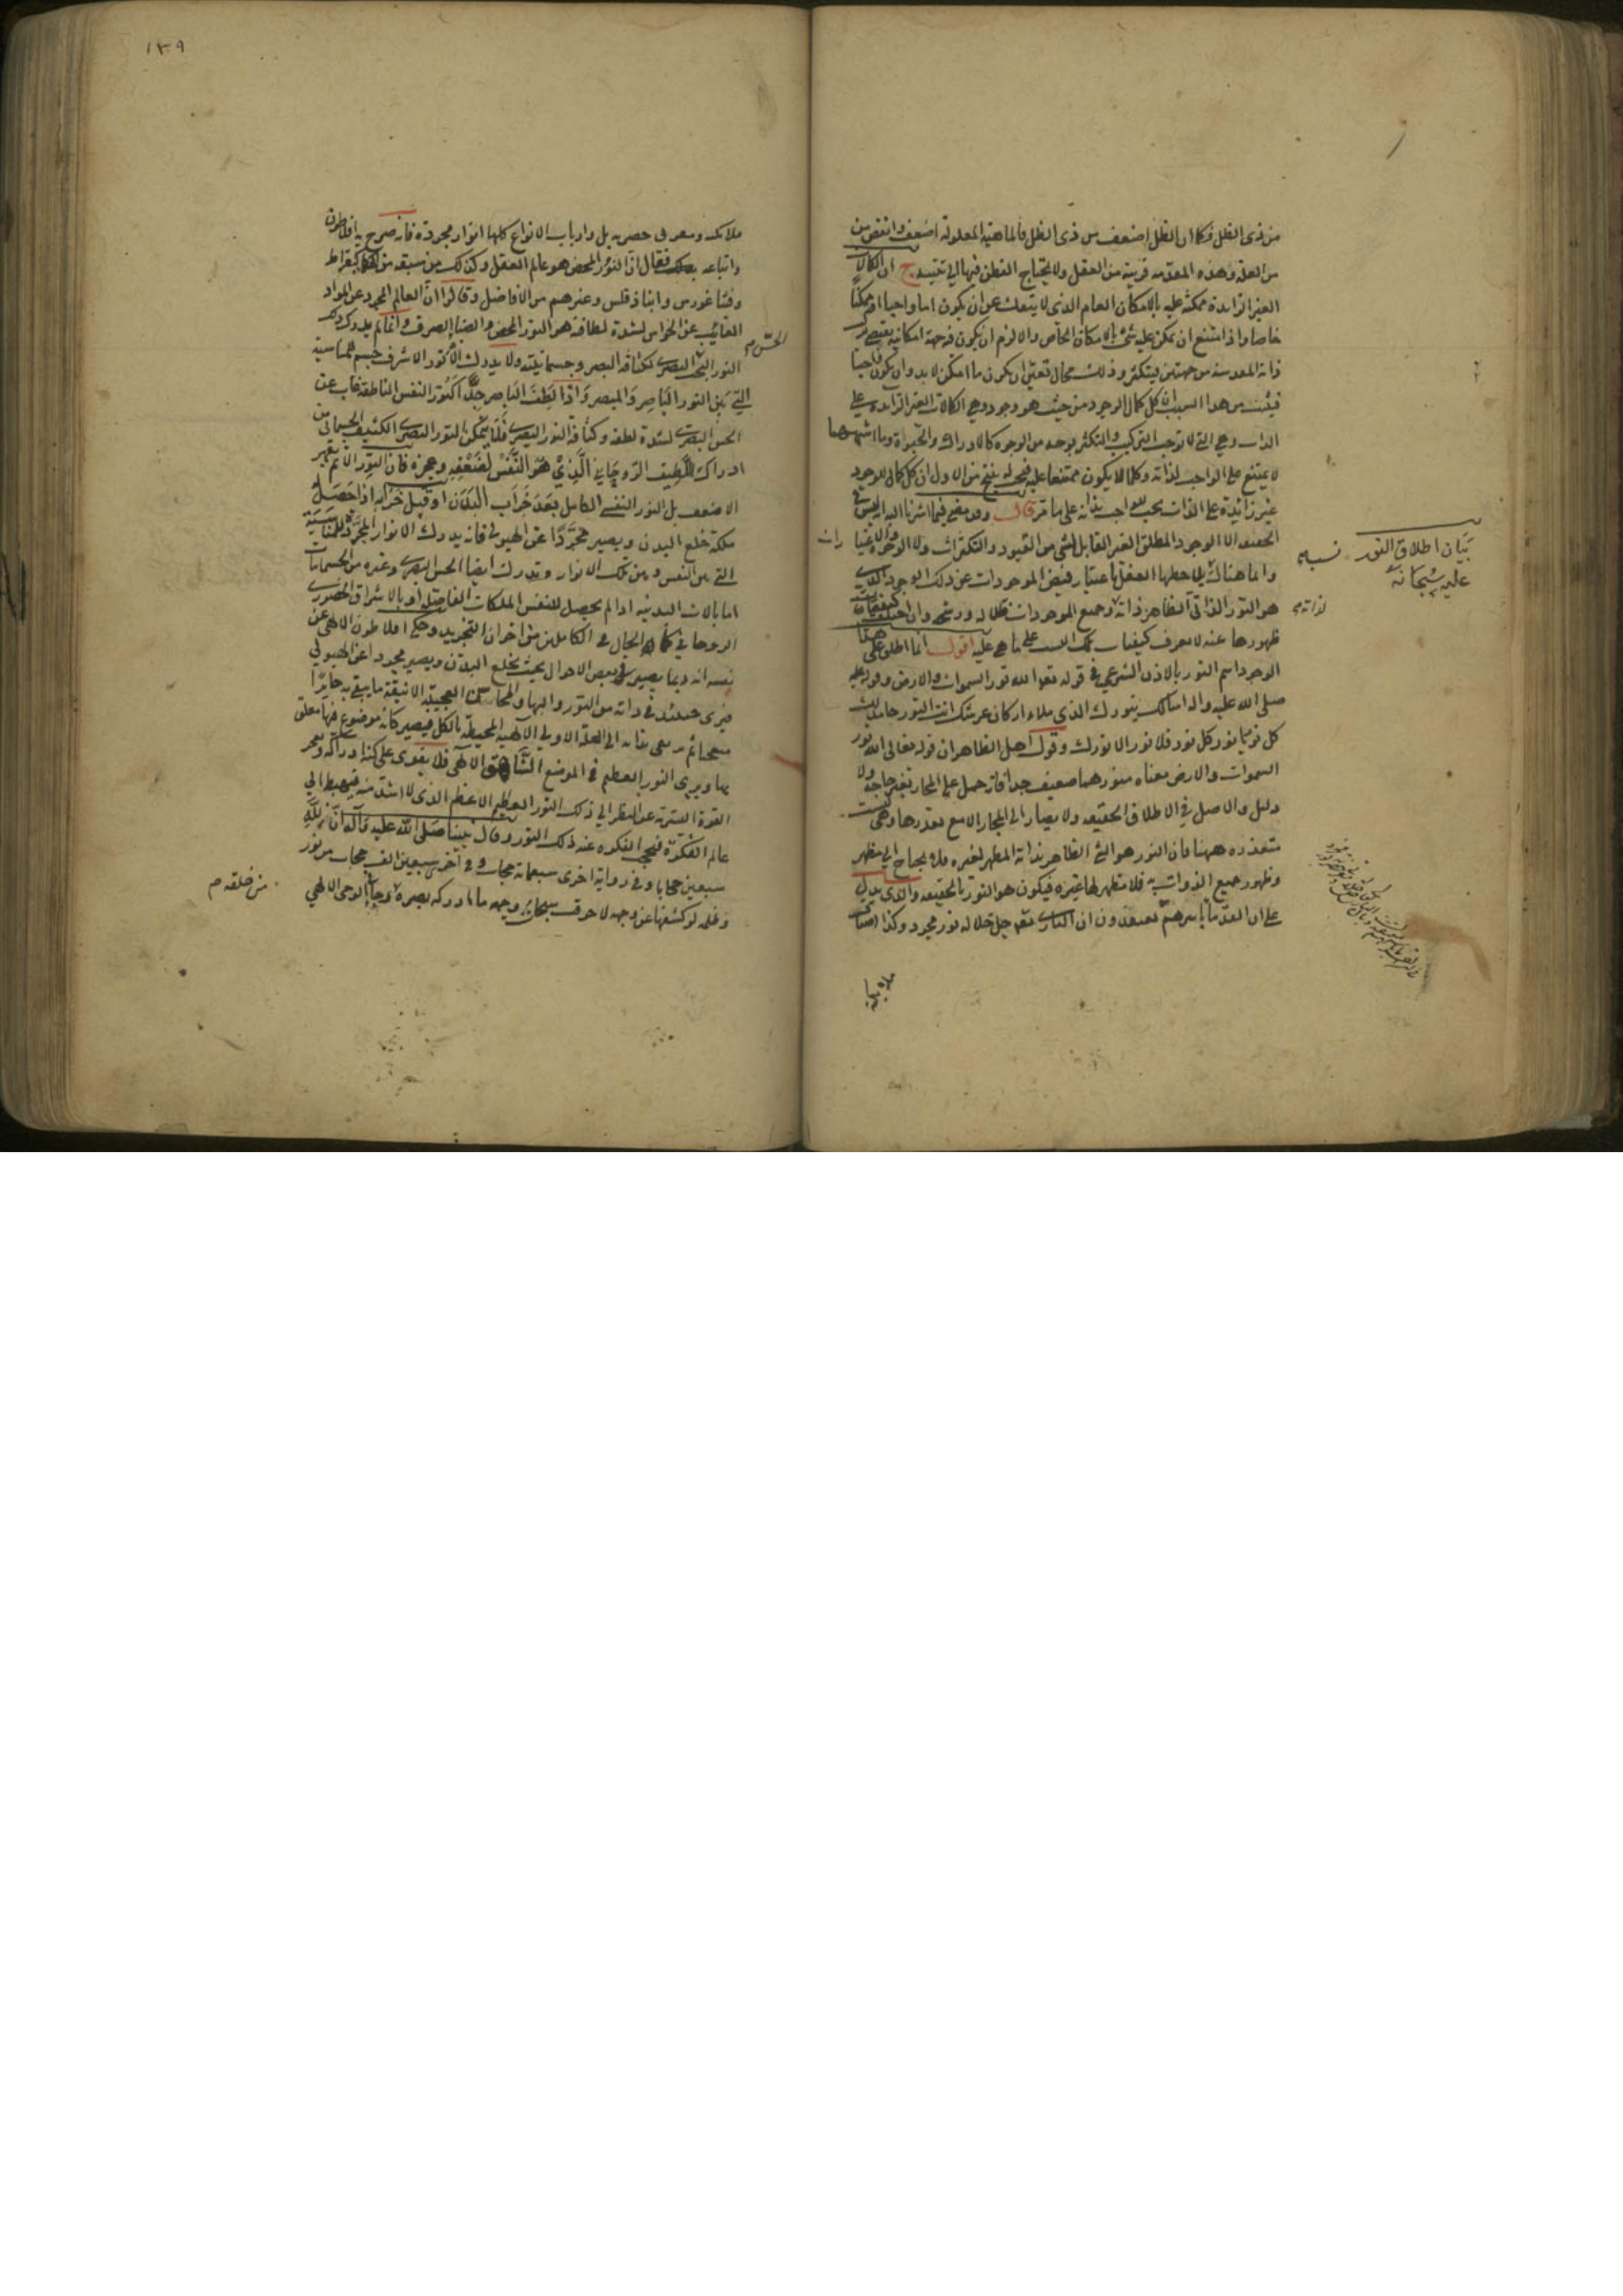 من ذى الظل فكما ان الظل اضعف من ذى الظل فالماهية المعلولة اضعف وانقص من
من العلة وهذه المقدمة قريبة من العقل ولا يحتاج الفطن فيها الى تنبيه ج ان الكمالات
الغير الزايدة ممكنة عليه بالامكان العام الذى لا ينفك عن ان يكون اما واجبا او ممكنا
خاصا واذا امتنع ان يمكن عليه شئ بالامكان الخاص والا لزم ان يكون فيه جهة امكانية
ذاته المقدسة من جهتين فيتكثر وذلك محال تعين ان يكون ما امكن لا بد وان يكون واجبا
فيثبت من هذا ان كل كمال الوجود من حيث هو وجود وهى الكمالات الغير الزايدة على
الذات وهى التى لا توجب التركيب والتكثر بوجه من الوجوه كالادراك والحيوة وما اشبهها
لا يمتنع على الواجب لذاته وكلما لا يكون ممتنعا عليه فيجب له ينتج من الاول ان كل كمال للوجود
غير زائدة على الذات يجب للواجب بذاته على ما مر قال وقد مضى فيما اشرنا اليه ان ليس فى
الحقيقة الا الوجود المطلق الغير القابل لشئ من القيود والتكثرات ولا الوجوه والاعتبارات
وانما هناك جعلها العقل باعتبار فيض الموجودات عن ذلك الوجود الذى
هو النور الذاتى الظاهر لذاته وجميع الموجودات ظلاله ورشحه وان اختلفت كيفيات
ظهورها عنه لا يعرف كيفيات تلك النسب على ما هى عليه اقول انما اطلق على هذا
الوجود اسم النور بالاذن الشرعى فى قوله تعالى الله نور السموات والارض وقوله عليه
صلى الله عليه واله اسالك بنورك الذى ملاء اركان عرشك انت النور خالق
كل نور يا نور كل نور فلا نور الا نورك وقول اهل الظاهر ان قوله تعالى الله نور
السموات والارض معناه منورهما ضعيف جدا فانه حمل على المجاز بغير حاجة ولا
دليل والاصل فى الاطلاق الحقيقة ولا يصار الى المجاز الا مع تعذرها وهى ليست
متعذرة ههنا فان النور هو الشئ الظاهر بذاته المظهر لغيره فلا يحتاج الى مظهر
وظهور جميع الذوات به فلا مظهر لها غيره فيكون هو النور بالحقيقة والذى يدل
على ان القدماء باسرهم يعتقدون ان البارى تعالى جل جلاله نور مجرد وكذا
ملائكة
بيان اطلاق النور
عليه سبحانه
نسبه
لذاته
١٣٩
ملائكته ومقربى حضرته بل وارباب الانواع كلها انوار مجردة فانه صرح به افلاطون
واتباعه فقال ان النور المحض هو عالم العقل وكذلك من سبقه من الحكماء كبقراط
وفيثاغورس وانباذقلس وغيرهم من الافاضل وقالوا ان العالم المجرد عن المواد
الغائب عن الحواس لشدة لطافته هو النور المحض والضياء الصرف وانما لم يدرك ذلك
النور الحس البصرى لكثافة البصر وجسمانيته ولا يدرك النور الاشرف جسم للمناسبة
التى بين النور الباصر والمبصر واذا لطف الباصر جدا كنور النفس الناطقة غاب عن
الحس البصرى لشدة لطفه وكثافة النور البصرى فلا يتمكن النور البصرى الكثيف الجسمانى من
ادراك اللطيف الروحانى الذى هو النفس لضعفه وعجزه فان النور الاتم يقهر
الاضعف بل النور النفسى الكامل بعد خراب البدن او قبل خرابه اذا حصل له
ملكة خلع البدن ويصير مجردا عن الهيولى فانه يدرك الانوار المجردة للمناسبة
التى بين النفس وبين تلك الانوار وتدرك ايضا الحس البصرى وغيره من الجسمانيات
اما بالالات البدنية اذا لم يحصل للنفس الملكات الفاضلة او بالاشراق الحضورى
الروحانى كما هو الحال فى الكاملين من اخوان التجريد وحكى افلاطون الالهى عن
نفسه انه ربما يصير فى بعض الاحوال بحيث يخلع البدن ويصير مجردا عن الهيولى
فيرى حينئذ فى ذاته من النور والبهاء والمحاسن العجيبة الانيقة ما يبقى به حايرا
متعجبا ثم يرتقى بذاته الى العلة الاولى الالهية المحيطة بالكل فيصير كانه موضوع فيها معلق
بها ويرى النور العظيم فى الموضع الشاهق الالهى فلا يقوى على كنه ادراكه وتعجز
القوة البشرية عن النظر الى ذلك النور العظيم الاعظم الذى لا اشد منه فيهبط الى
عالم الفكرة فتحجب الفكرة عنه ذلك النور وقال نبينا صلى الله عليه وآله ان لله
سبعين حجابا وفى رواية اخرى سبعمائة حجاب وفى آخرى سبعين الف حجاب من نور
وظلمة لو كشفها عن وجهه لاحرقت سبحات وجهه ما ادركه بصره وجاء فى الوحى الالهى
الحس م
من خلقه م